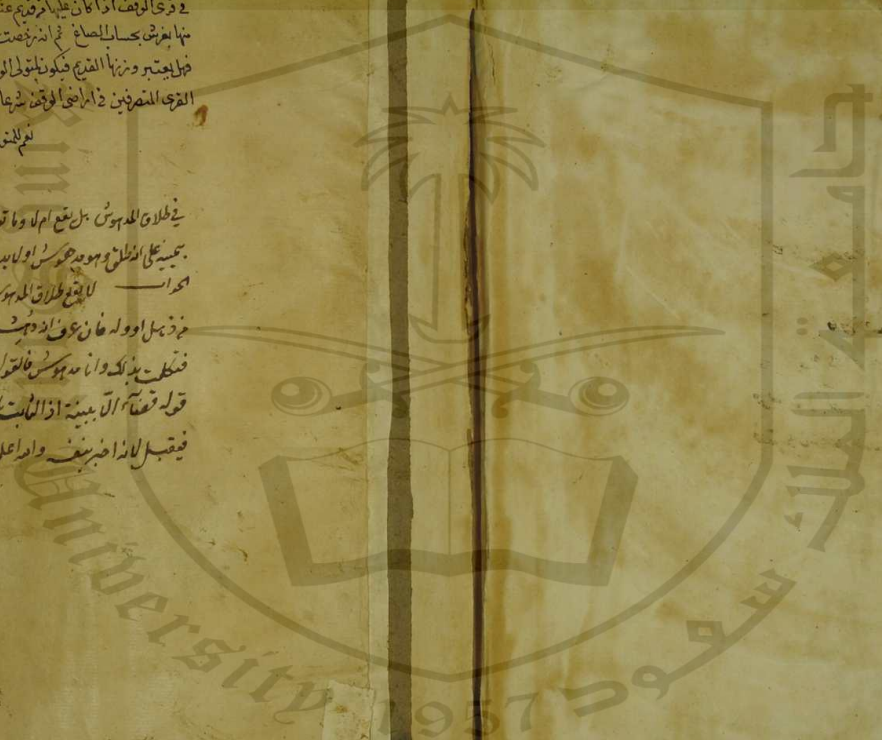 في قرى الوقف اذا كان عليها من قديم
منها بقرش بحساب الصاغ ثم انه رخصت
فهل يعتبر وزنها القديم فيكون لمتولي
القرى المتصرفين في اراضي الوقف شرعا
نعم
في طلاق المدهوش هل يقع ام لا وما
بيمينه على انه طلق وهو مدهوش او لا
الجواب لا يقع طلاق
من ذهل او وله فان عرف انه دهش
فتكلمت بذلك وانا مدهوش فالقول
قوله قضاء الا ببينة اذ الثابت
فيقبل لانه اخبر بنفسه والله اعلم
جامعة الملك سعود
King Saud University
1957